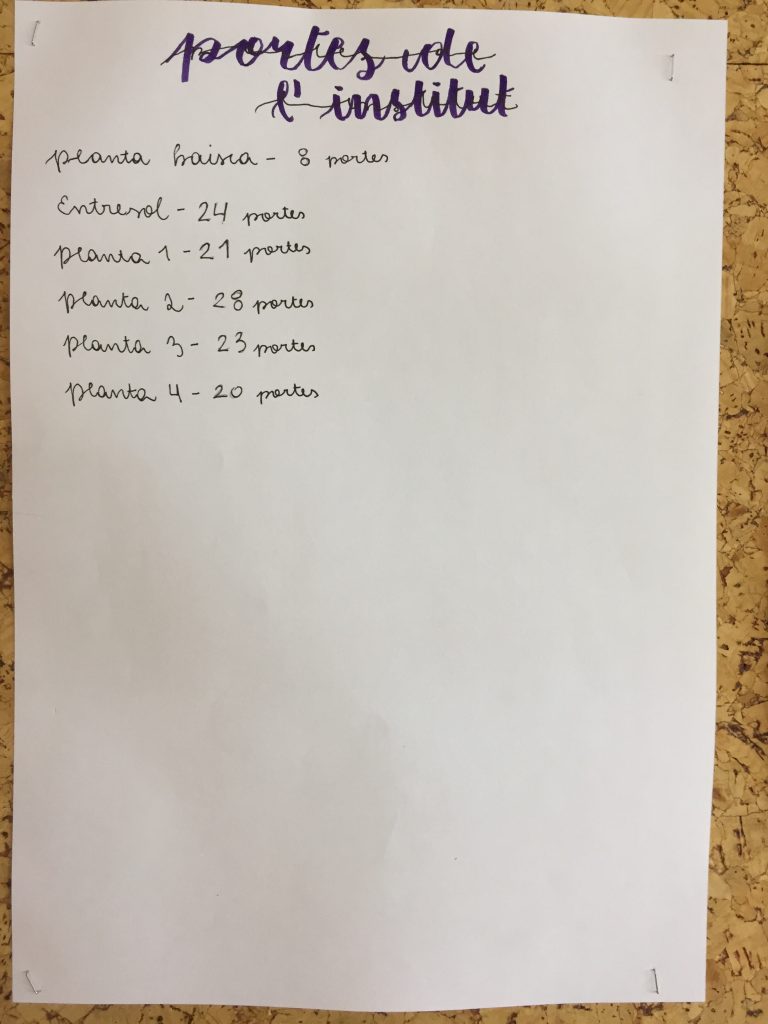 portes de
l'institut
planta baixa - 8 portes
Entresol - 24 portes
planta 1 - 21 portes
planta 2 - 28 portes
planta 3 - 23 portes
planta 4 - 20 portes